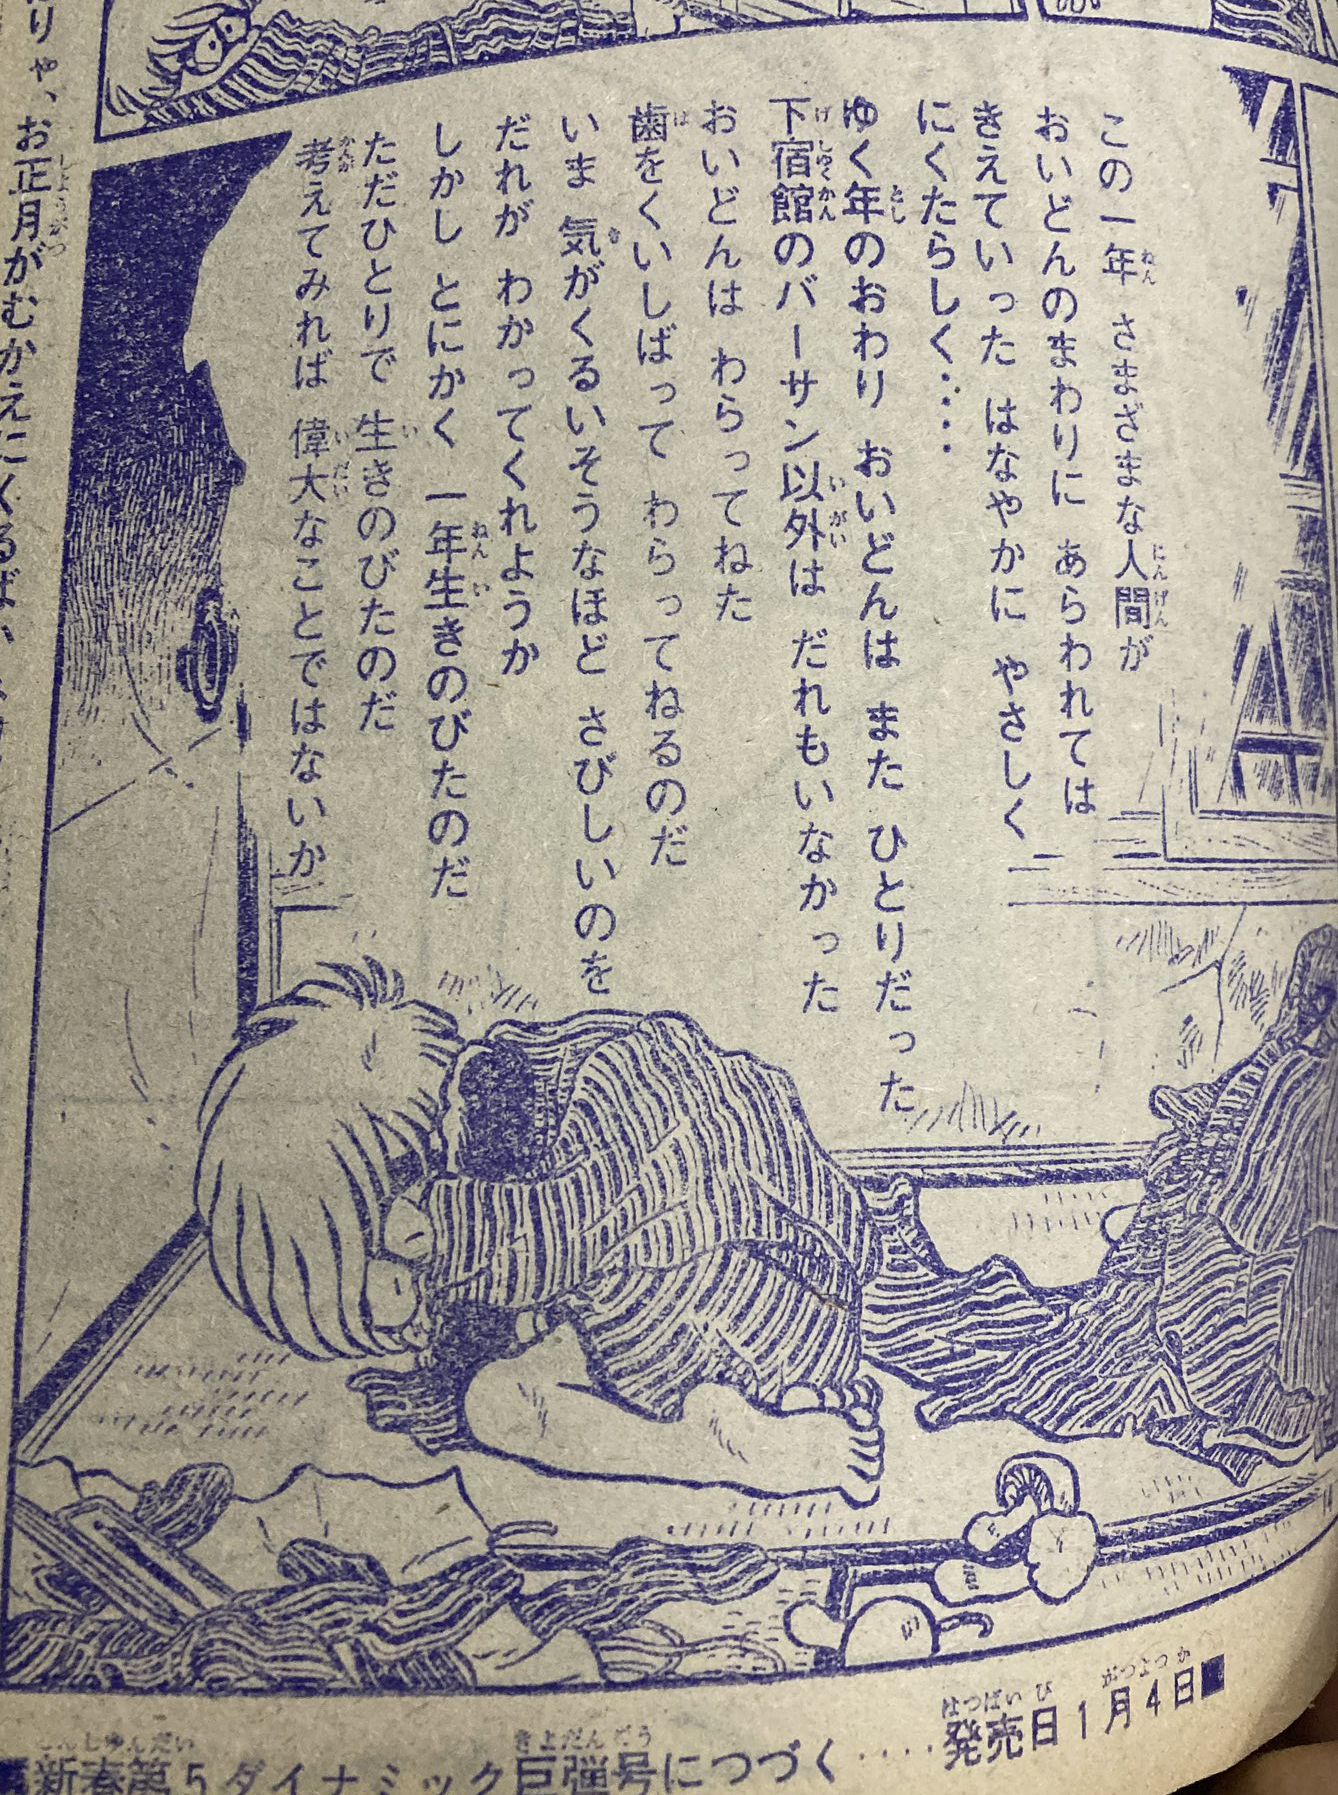 この一年 さまざまな人間が
おいどんのまわりに あらわれては
きえていった はなやかに やさしく
にくたらしく‥‥
ゆく年のおわり おいどんは また ひとりだった
下宿館のバーサン以外は だれもいなかった
おいどんは わらってねた
歯をくいしばって わらってねるのだ
いま 気がくるいそうなほど さびしいのを
だれが わかってくれようか
しかし とにかく 一年生きのびたのだ
ただひとりで 生きのびたのだ
考えてみれば 偉大なことではないか
りゃ、お正月がむかえにくるばい
新春第5ダイナミック巨弾号につづく‥‥発売日1月4日■